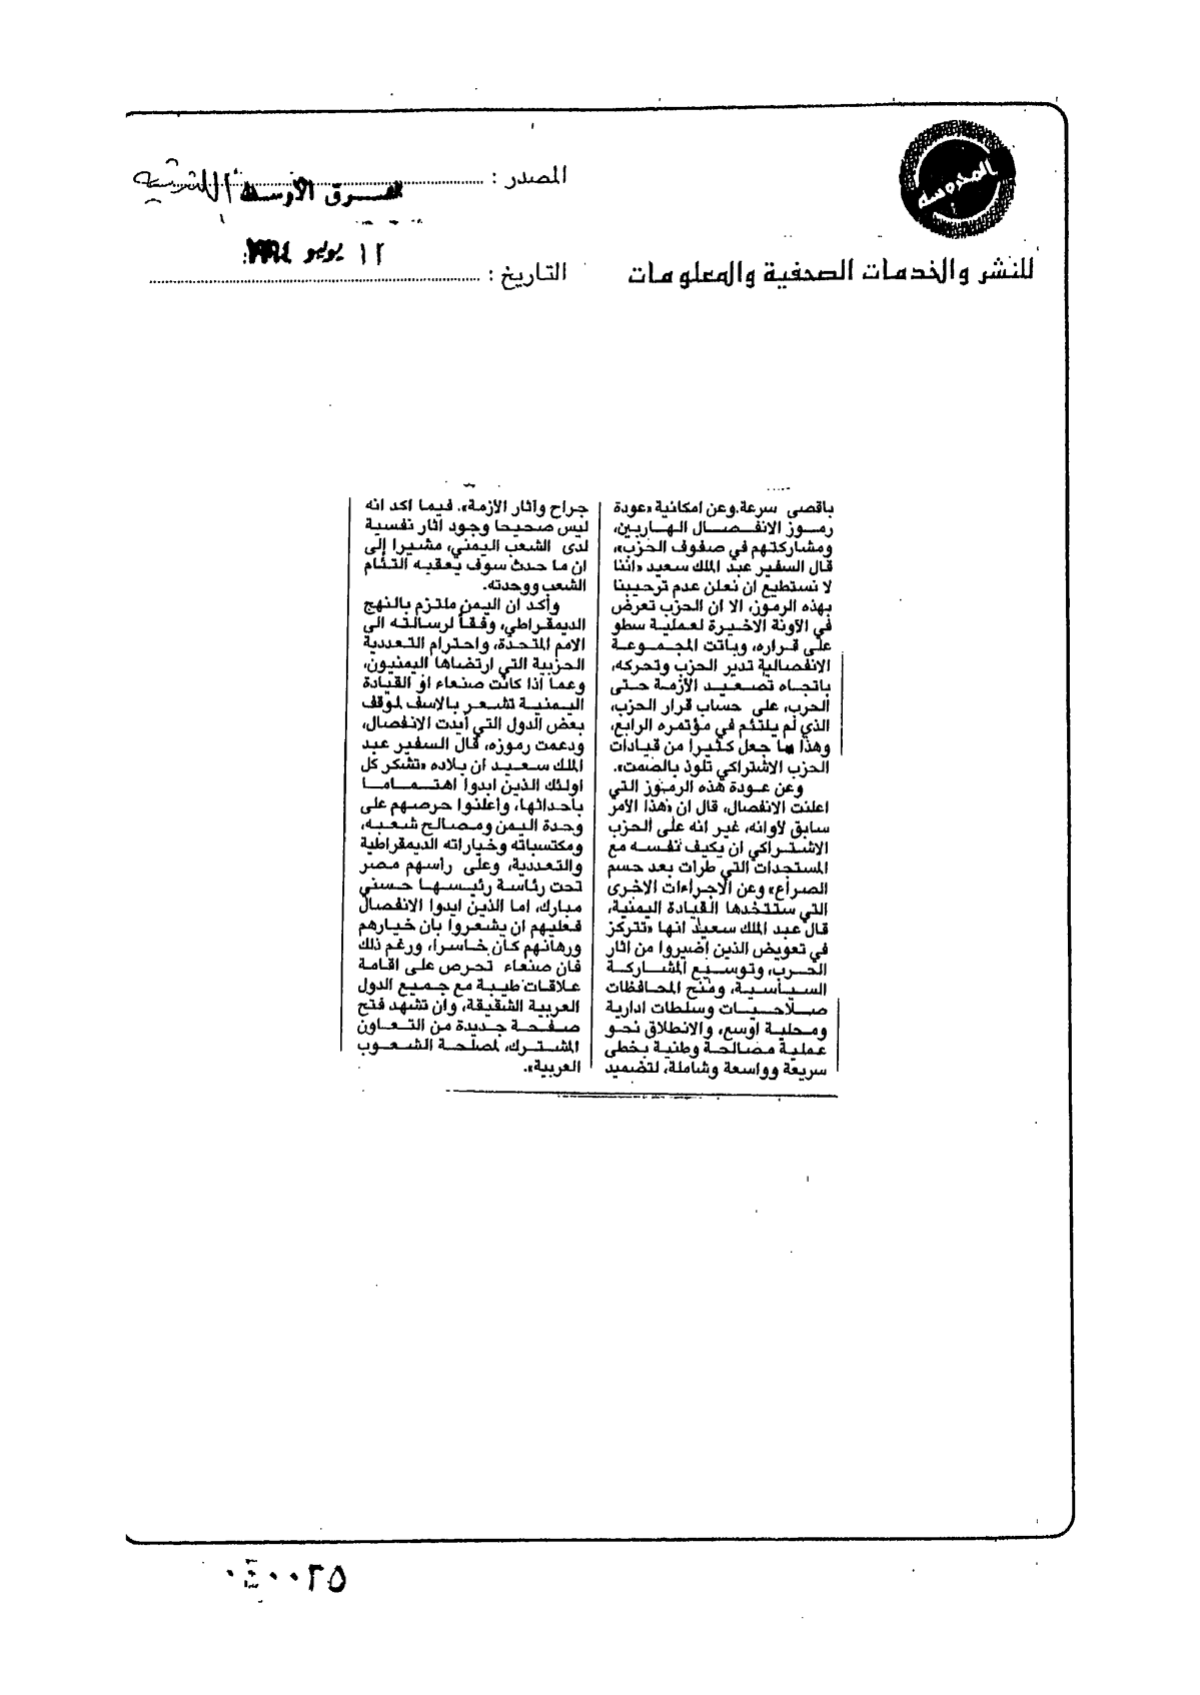 المصدر :
الشرق الأوسط اللندنية
١٢ يوليو ١٩٩٤
التاريخ :
المحروسة
للنشر والخدمات الصحفية والمعلومات
باقصى سرعة. وعن امكانية «عودة
رموز الانفصال الهاربين،
ومشاركتهم في صفوف الحزب»،
قال السفير عبد الملك سعيد «اننا
لا نستطيع ان نعلن عدم ترحيبنا
بهذه الرموز، الا ان الحزب تعرض
في الآونة الاخيرة لعملية سطو
على قراره، وباتت المجموعة
الانفصالية تدير الحزب وتحركه،
باتجاه تصعيد الأزمة حتى
الحرب، على حساب قرار الحزب،
الذي لم يلتئم في مؤتمره الرابع،
وهذا ما جعل كثيرا من قيادات
الحزب الاشتراكي تلوذ بالصمت».
وعن عودة هذه الرموز التي
اعلنت الانفصال، قال ان «هذا الأمر
سابق لأوانه، غير انه على الحزب
الاشتراكي ان يكيف نفسه مع
المستجدات التي طرات بعد حسم
الصراع» وعن الاجراءات الاخرى
التي ستتخذها القيادة اليمنية،
قال عبد الملك سعيد انها «تتركز
في تعويض الذين اضيروا من اثار
الحرب، وتوسيع المشاركة
السياسية، ومنح المحافظات
صلاحيات وسلطات ادارية
ومحلية اوسع، والانطلاق نحو
عملية مصالحة وطنية بخطى
سريعة وواسعة وشاملة، لتضميد
جراح وآثار الأزمة». فيما اكد انه
ليس صحيحا وجود اثار نفسية
لدى الشعب اليمني، مشيرا إلى
ان ما حدث سوف يعقبه التئام
الشعب ووحدته.
وأكد ان اليمن ملتزم بالنهج
الديمقراطي، وفقاً لرسالته الى
الامم المتحدة، واحترام التعددية
الحزبية التي ارتضاها اليمنيون،
وعما اذا كانت صنعاء او القيادة
اليمنية تشعر بالاسف لموقف
بعض الدول التي أيدت الانفصال،
ودعمت رموزه، قال السفير عبد
الملك سعيد ان بلاده «تشكر كل
اولئك الذين ابدوا اهتماما
باحداثها، واعلنوا حرصهم على
وحدة اليمن ومصالح شعبه،
ومكتسباته وخياراته الديمقراطية
والتعددية، وعلى راسهم مصر
تحت رئاسة رئيسها حسني
مبارك، اما الذين ايدوا الانفصال
فعليهم ان يشعروا بان خيارهم
ورهانهم كان خاسرا، ورغم ذلك
فان صنعاء تحرص على اقامة
علاقات طيبة مع جميع الدول
العربية الشقيقة، وان تشهد فتح
صفحة جديدة من التعاون
المشترك، لمصلحة الشعوب
العربية».
٠٤٠٠٢٥